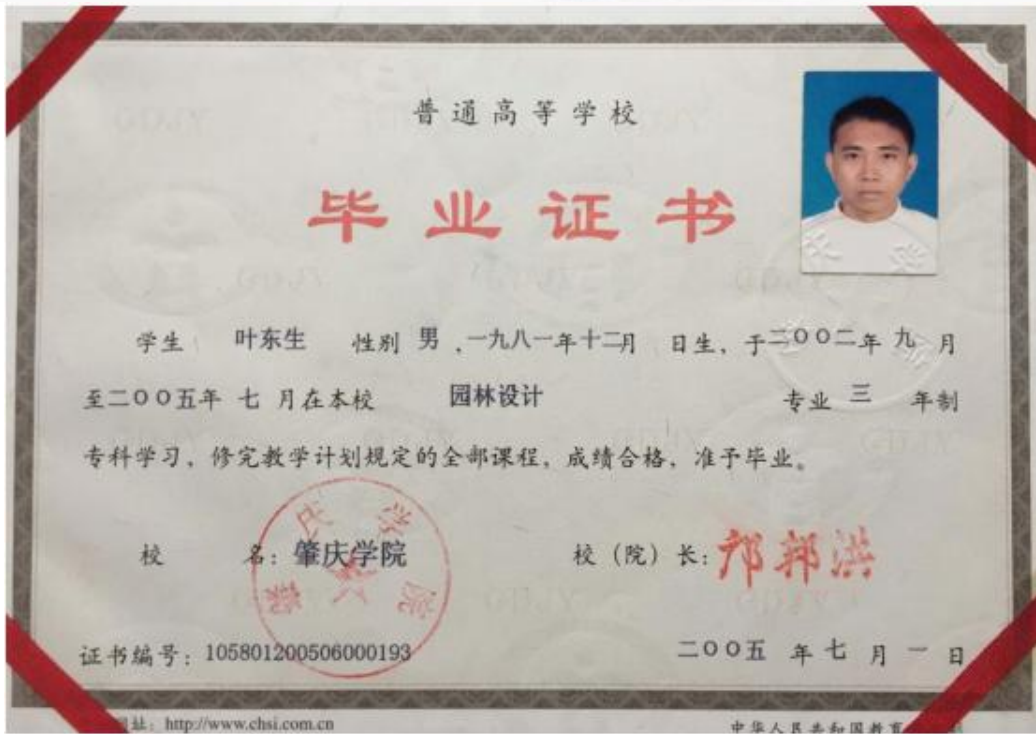 普通高等学校
毕业证书
学生 叶东生 性别 男 ,一九八一年十二月 日生, 于二〇〇二年 九 月
至二〇〇五年 七 月在本校 园林设计 专业 三 年制
专科学习, 修完教学计划规定的全部课程, 成绩合格, 准予毕业。
校 名: 肇庆学院 校(院)长:
肇庆学院
证书编号: 105801200506000193 二〇〇五 年 七 月 一 日
址: http://www.chsi.com.cn 中华人民共和国教育